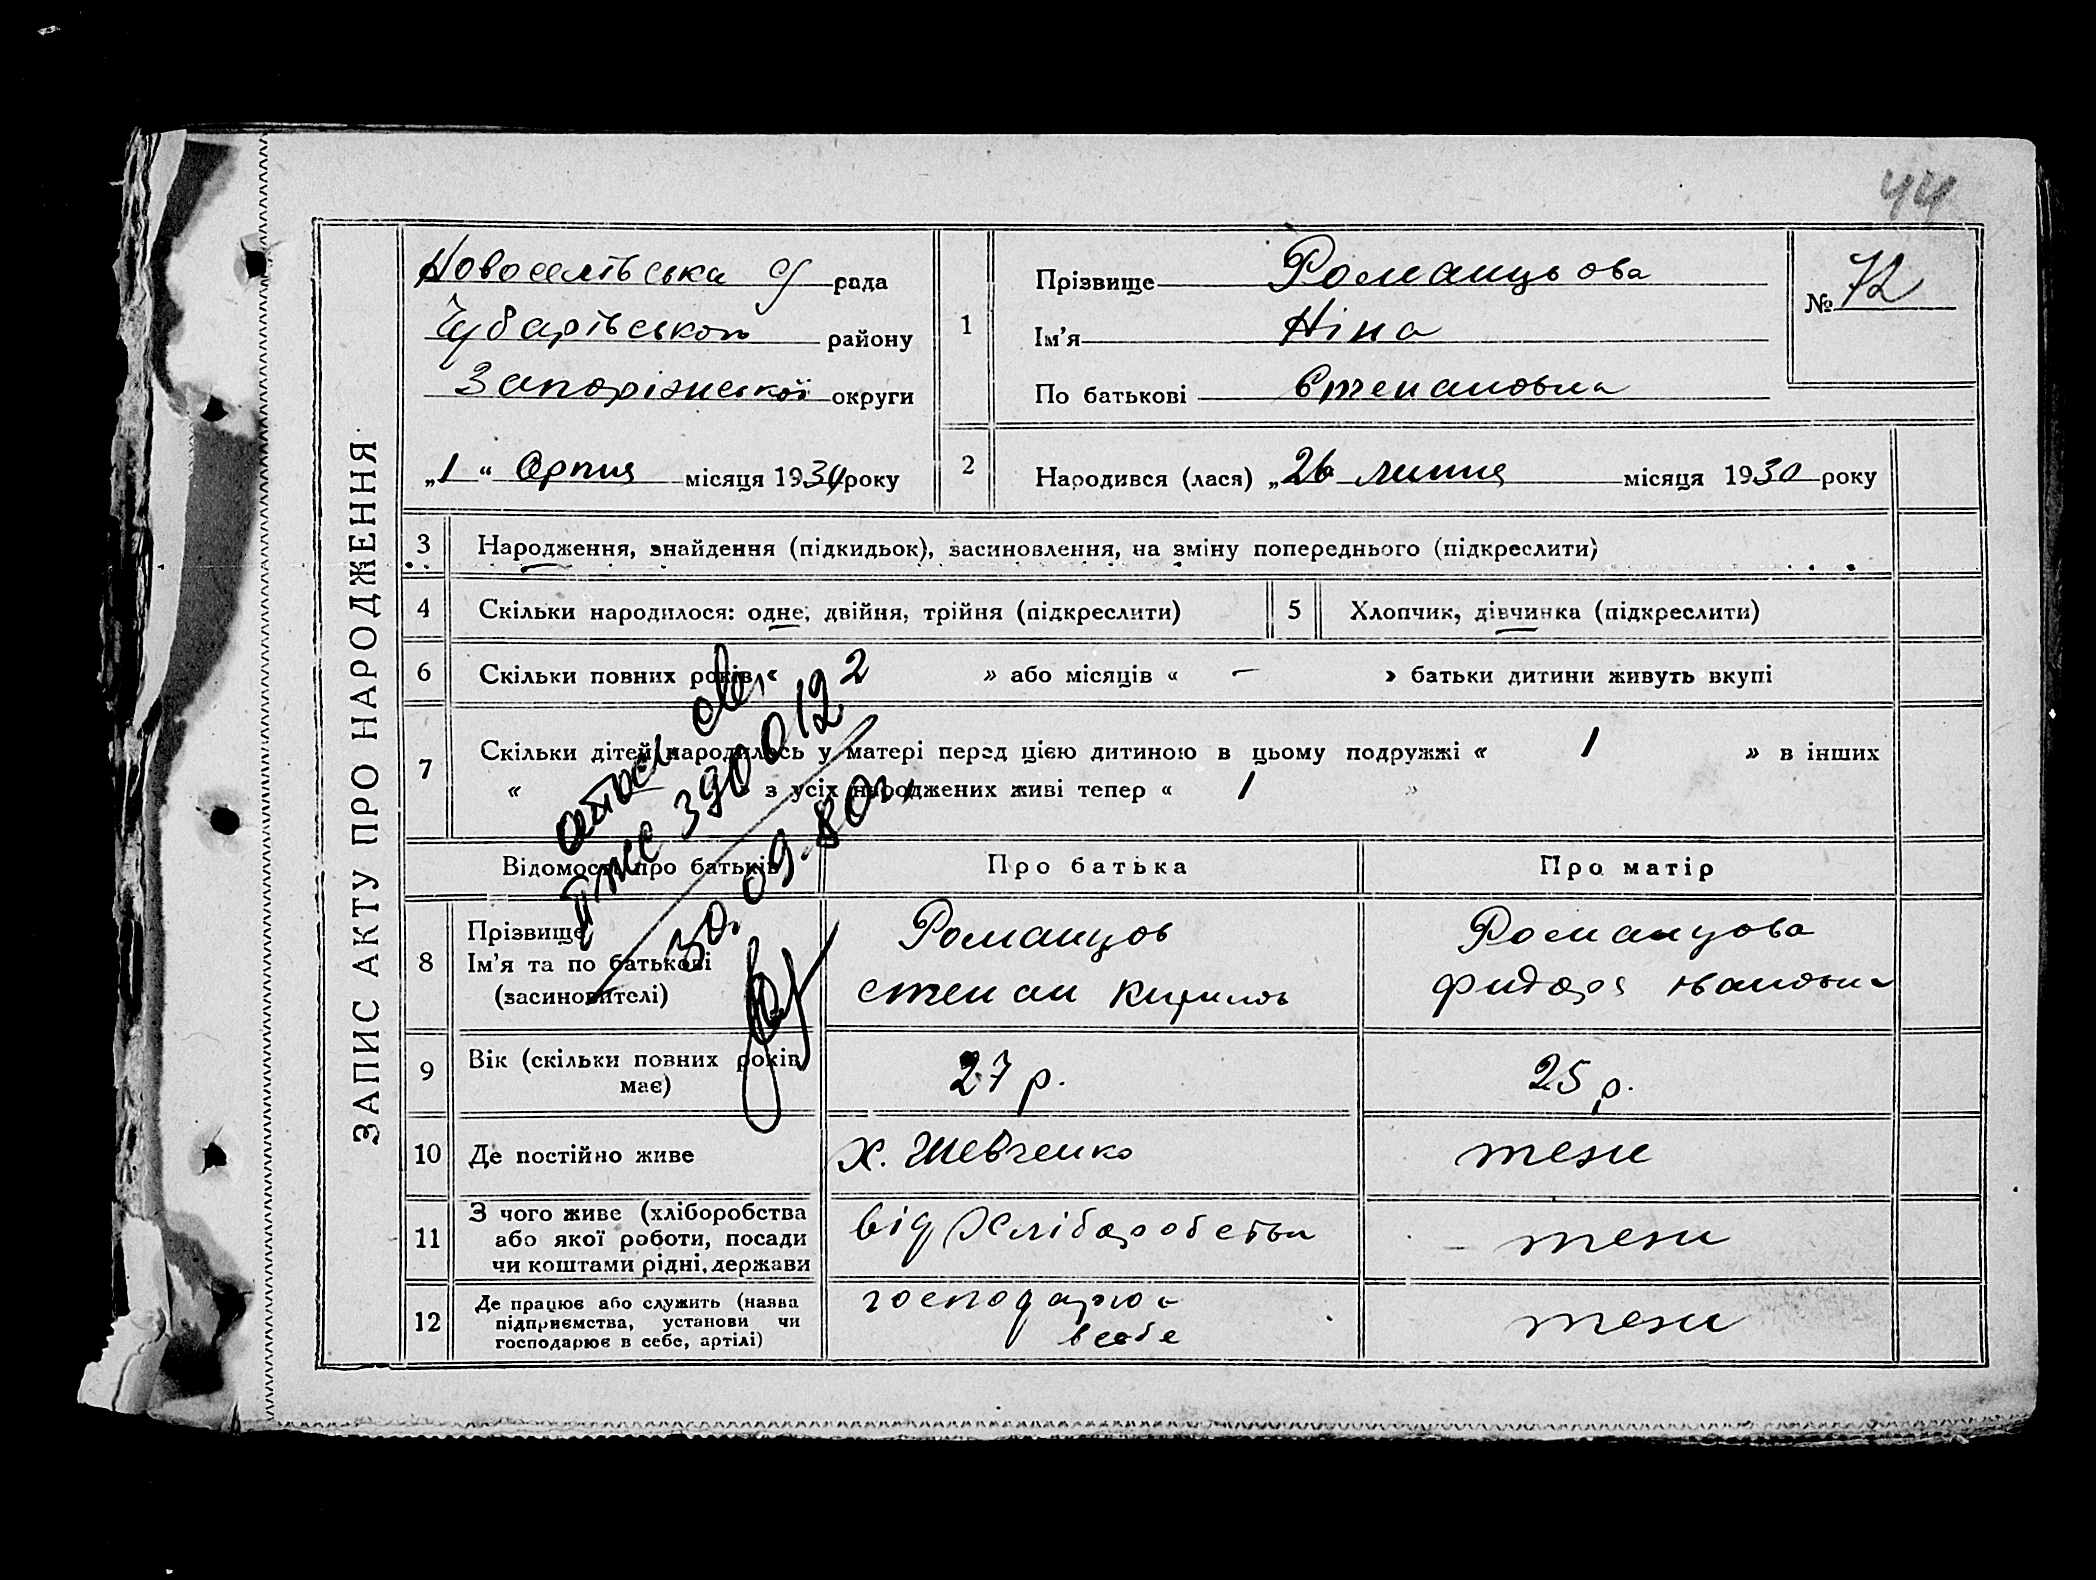 44
ЗАПИС АКТУ ПРО НАРОДЖЕННЯ
Новоселівська с/рада
Чубарівського району
Запоріжської округи
„1“ Серпня місяця 1930 року
1
Прізвище Романцьова
Ім’я Ніна
По батькові Степановна
№ 72
2
Народився (лася) „26 липня місяця 1930 року
3 Народження, знайдення (підкидьок), засиновлення, на зміну попереднього (підкреслити)
4 Скільки народилося: одне, двійня, трійня (підкреслити)
5 Хлопчик, дівчинка (підкреслити)
6 Скільки повних років « 2 » або місяців « – » батьки дитини живуть вкупі
7 Скільки дітей народилось у матері перед цією дитиною в цьому подружжі « 1 » в інших
« – » з усіх народжених живі тепер « 1 »
390012
30.09.80г.
Відомості про батьків Про батька Про матір
8 Прізвище
Ім’я та по батькові
(засиновителі)
Романцов
степан Кирилов
Романцова
Фидора Ивановна
9 Вік (скільки повних років
має)
27 р.
25 р.
10 Де постійно живе
х. Шевченко
теж
11 З чого живе (хліборобства
або якої роботи, посади
чи коштами рідні, держави
від Хліборобства
теж
12 Де працює або служить (назва
підприємства, установи чи
господарює в себе, артілі)
господарює
в себе
теж